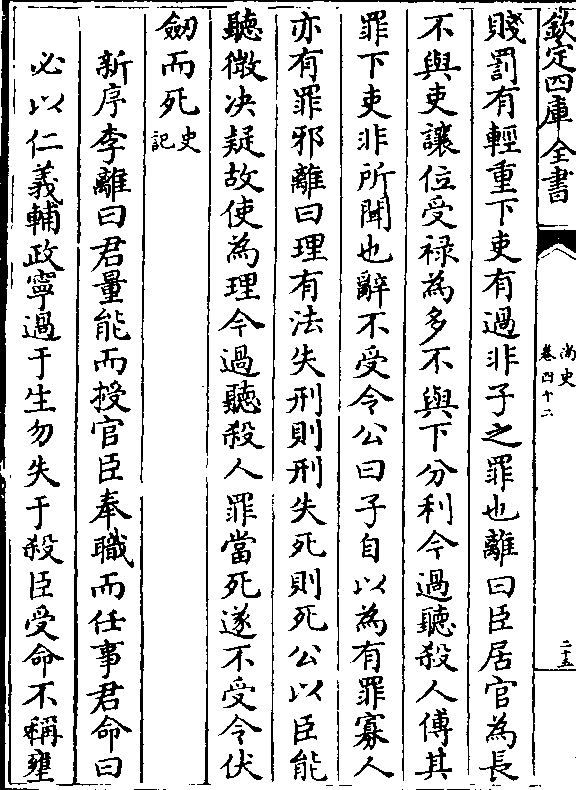 欽定四庫全書
尚史
卷四十二
二十五
賤罰有輕重下吏有過非子之罪也離曰臣居官為長
不與吏讓位受祿為多不與下分利今過聽殺人傅其
罪下吏非所聞也辭不受令公曰子自以為有罪寡人
亦有罪邪離曰理有法失刑則刑失死則死公以臣能
聽微決疑故使為理今過聽殺人罪當死遂不受令伏
劒而死史記
新序李離曰君量能而授官臣奉職而任事君命曰
必以仁義輔政寧過于生勿失于殺臣受命不稱壅